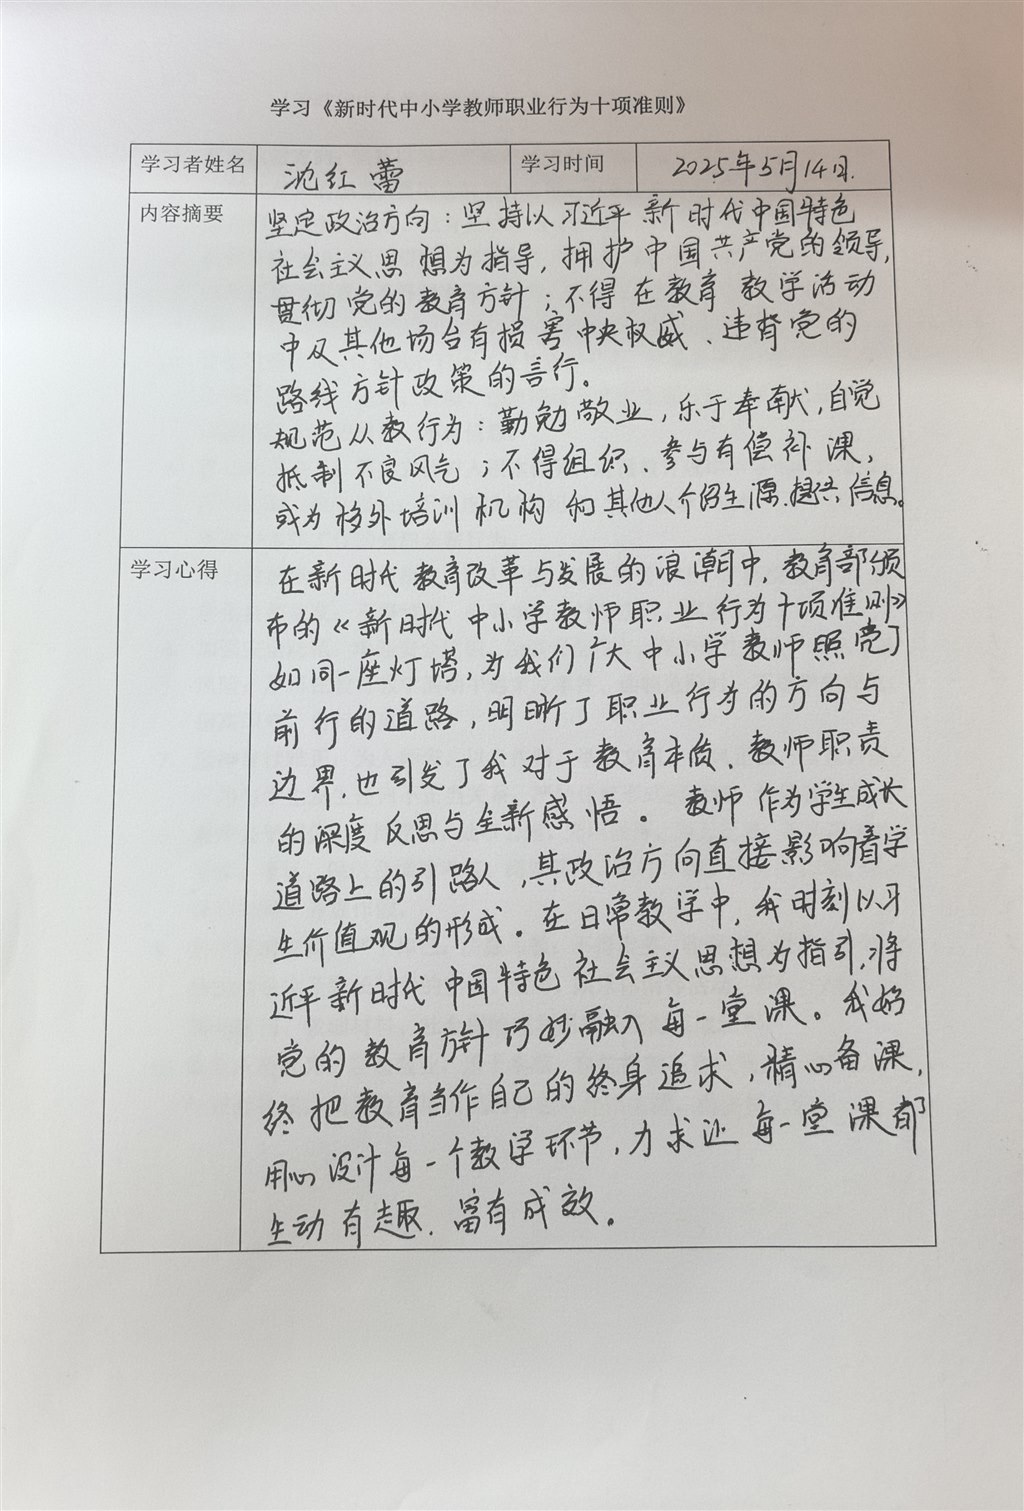 学习《新时代中小学教师职业行为十项准则》
学习者姓名 沈红蕾 学习时间 2025年5月14日.
内容摘要
坚定政治方向：坚持以习近平新时代中国特色
社会主义思想为指导，拥护中国共产党的领导，
贯彻党的教育方针；不得在教育教学活动
中及其他场合有损害中央权威、违背党的
路线方针政策的言行。
规范从教行为：勤勉敬业，乐于奉献，自觉
抵制不良风气；不得组织、参与有偿补课，
或为校外培训机构和其他人介绍生源、提供信息。
学习心得
在新时代教育改革与发展的浪潮中，教育部颁
布的《新时代中小学教师职业行为十项准则》
如同一座灯塔，为我们广大中小学教师照亮了
前行的道路，明晰了职业行为的方向与
边界，也引发了我对于教育本质、教师职责
的深度反思与全新感悟。教师作为学生成长
道路上的引路人，其政治方向直接影响着学
生价值观的形成。在日常教学中，我时刻以习
近平新时代中国特色社会主义思想为指引，将
党的教育方针巧妙融入每一堂课。我始
终把教育当作自己的终身追求，精心备课，
用心设计每一个教学环节，力求让每一堂课都
生动有趣、富有成效。